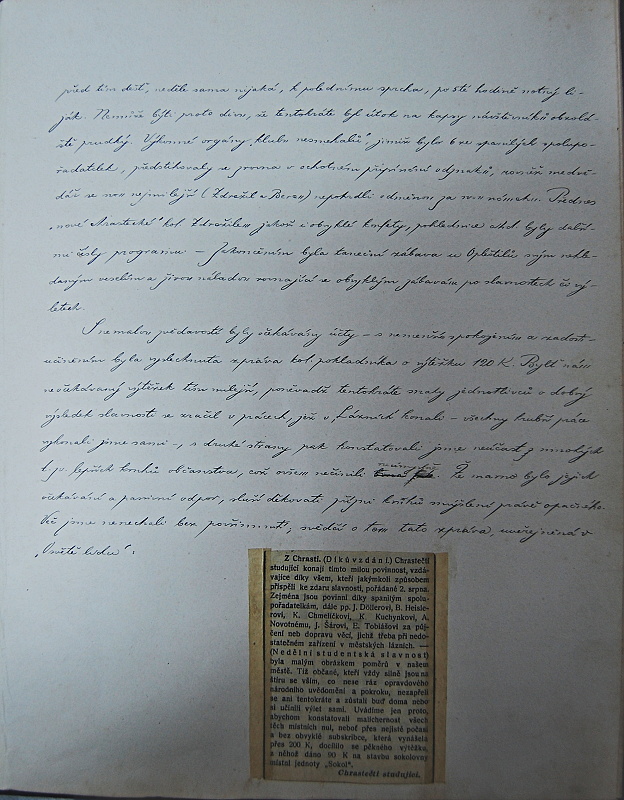 před tím déšť, neděle sama nijaká, k polednímu sprcha, po 5té hodině notný li-
ják. Nemůže býti proto divu, že tentokráte byl útok na kapsy návštěvníků obzvlá-
ště prudký. Výkonné orgány „klubu nesmekalů“ jimiž bylo 6 ze spanilých spolupo-
řadatelek, předstihovaly se zrovna v ochotném připínání odznaků, rovněž medvě-
dář se svou nejmilejší (Zdražil a Beran) nepohrdli odměnou za svou námahu. Přednes
„nové Araotecké“ kol. Zdražilem jakož i obvyklé konfety, pohlednice atd. byly další-
mi čísly programu – Zakončením byla taneční zábava u Opletalů svým nehle-
daným veselím a živou náladou rovnající se obvyklým zábavám po slavnostech či vý-
letech.
S nemalou zvědavostí byly očekávány účty – s nemenším uspokojením a zadost-
učiněním byla vyslechnuta zpráva kol. pokladníka o výtěžku 120 K. Bylť nám
neočekávaný výtěžek tím milejší, poněvadž tentokráte snahy jednotlivců o dobrý
výsledek slavnosti se zračil v pracech, jež v Lázních konali – všechny hrubší práce
vykonali jsme sami –, s druhé strany pak konstatovali jsme neúčast z mnohých
t. zv. lepších kruhů občanstva, což ovšem nečinili Že marno bylo jejich
očekávání a pasivní odpor, sluší děkovati přízni kruhů smýšlení právě opačného.
Věc jsme nenechali bez povšimnutí, svědčí o tom tato zpráva, uveřejněná v
„Osvětě lidu“:
Z Chrasti. (Díkůvzdání.) Chrastečtí
studující konají tímto milou povinnost, vzdá-
vajíce díky všem, kteří jakýmkoli způsobem
přispěli ke zdaru slavnosti, pořádané 2. srpna.
Zejména jsou povinni díky spanilým spolu-
pořadatelkám, dále pp. J. Döllerovi, B. Heisle-
rovi, K. Chmelíčkovi, K. Kuchynkovi, A.
Novotnému, J. Šárovi, E. Tobiášovi za půj-
čení neb dopravu věcí, jichž třeba při nedo-
statečném zařízení v městských lázních. —
(Nedělní studentská slavnost)
byla malým obrázkem poměrů v našem
městě. Tíž občané, kteří vždy silně jsou na
štíru se vším, co nese ráz opravdového
národního uvědomění a pokroku, nezapřeli
se ani tentokráte a zůstali buď doma nebo
si učinili výlet sami. Uvádíme jen proto,
abychom konstatovali malichernost všech
těch místních nul, neboť přes nejisté počasí
a bez obvyklé subskribce, která vynášela
přes 200 K, docílilo se pěkného výtěžku,
z něhož dáno 90 K na stavbu sokolovny
místní jednoty „Sokol“.
Chrastečtí studující.